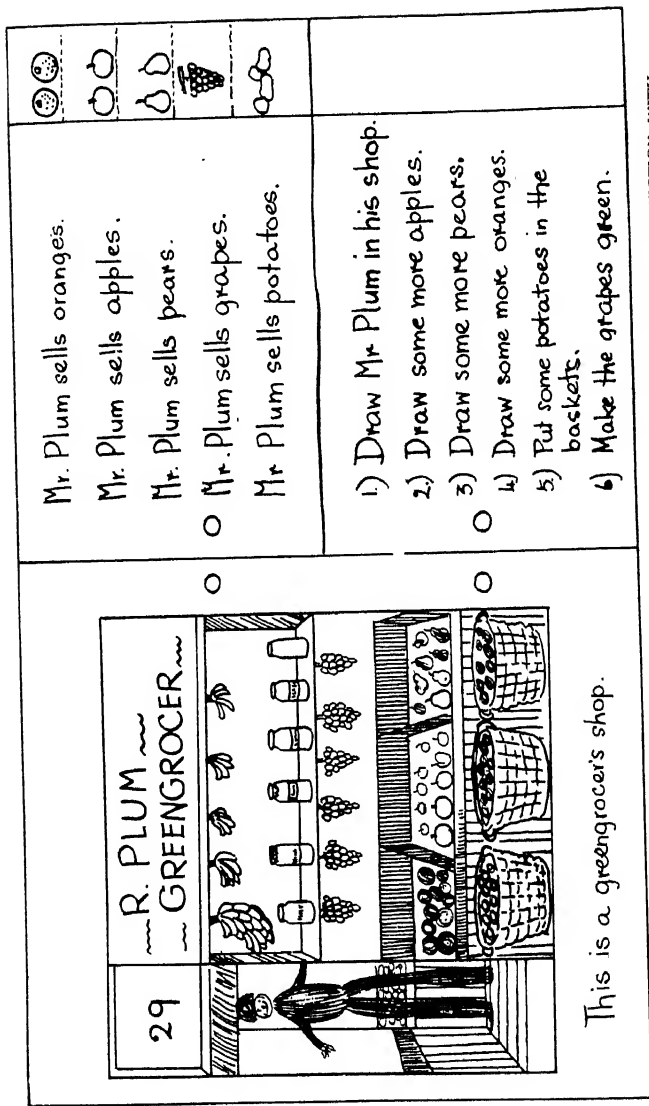 29
~R. PLUM~
~GREENGROCER~
This is a greengrocer's shop.
Mr. Plum sells oranges.
Mr. Plum sells apples.
Mr. Plum sells pears.
Mr. Plum sells grapes.
Mr Plum sells potatoes.
1.) Draw Mr Plum in his shop.
2.) Draw some more apples.
3.) Draw some more pears.
4.) Draw some more oranges.
5.) Put some potatoes in the
baskets.
6.) Make the grapes green.